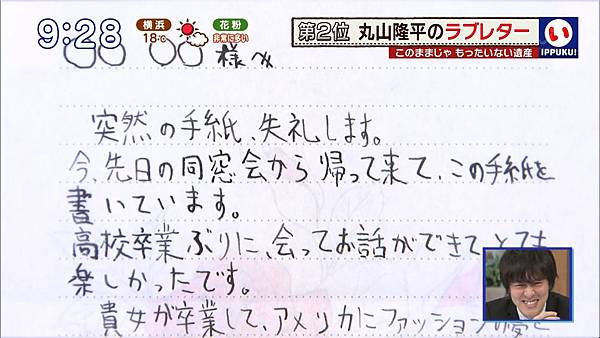 9:28
横浜
18℃
花粉
非常に多い
第2位 丸山隆平のラブレター
このままじゃ もったいない遺産
い
IPPUKU!
○○ ○○様へ
突然の手紙、失礼します。
今、先日の同窓会から帰って来て、この手紙を
書いています。
高校卒業ぶりに、会ってお話ができてとても
楽しかったです。
貴女が卒業して、アメリカにファッションの